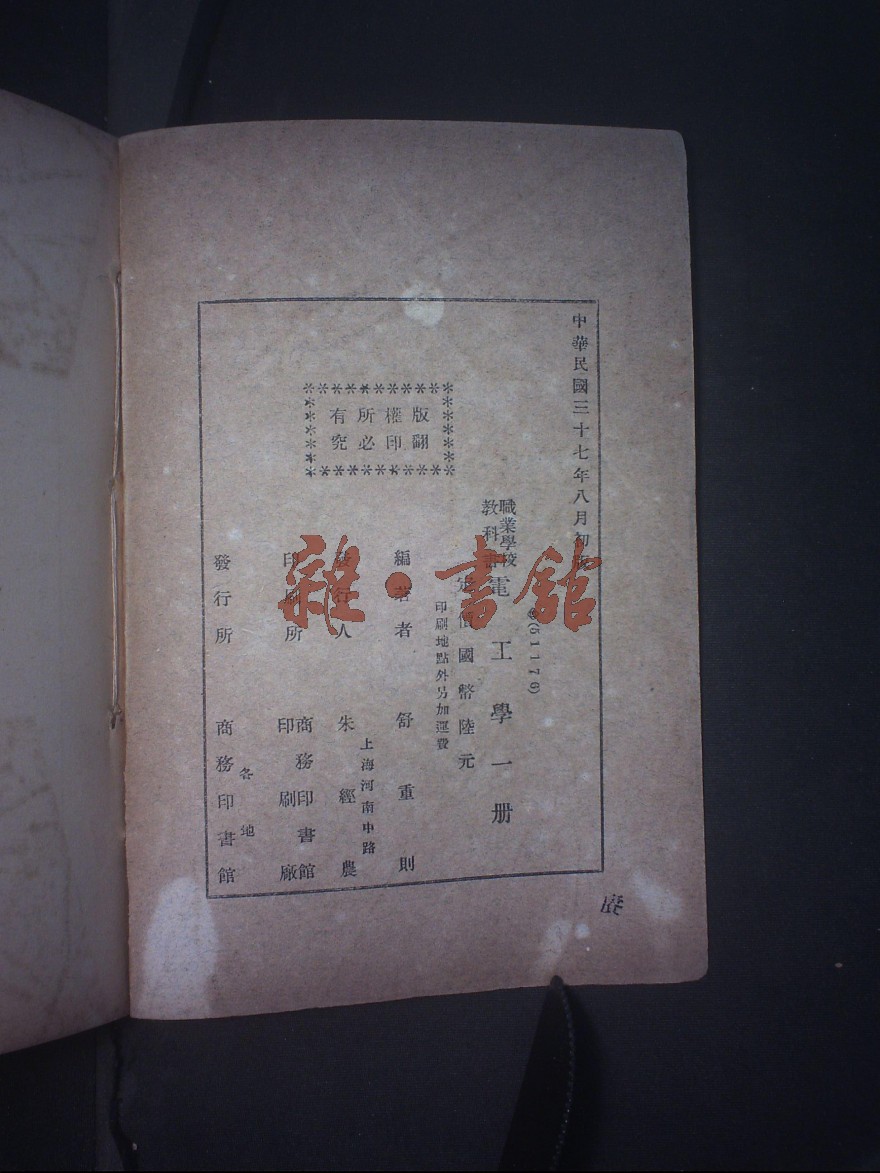 中華民國三十七年八月初版
(51176)
職業學校
教科書
電工學一册
定價國幣陸元
印刷地點外另加運費
版權所有
翻印必究
編著者 舒重則
發行人 朱經農
上海河南中路
印刷所 商務印書館
印刷廠
發行所 各地
商務印書館
雜·書館